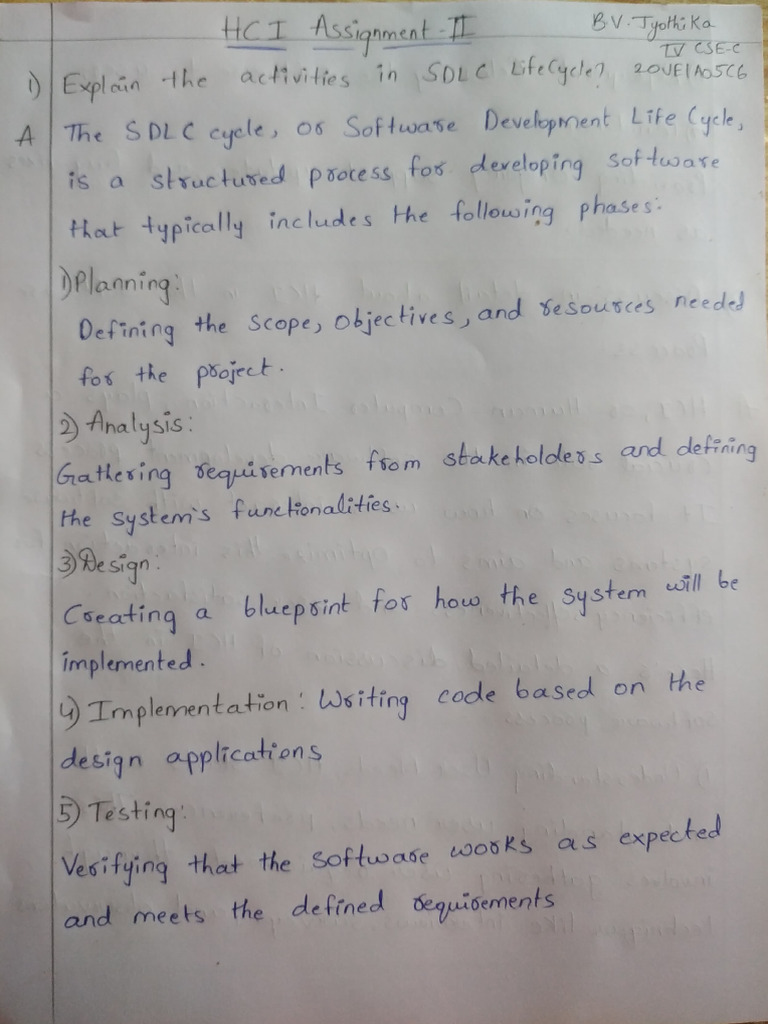 HCI Assignment-II
B.V. Jyothika
IV CSE-C
20UE1A05C6
1) Explain the activities in SDLC LifeCycle?
A The SDLC cycle, or Software Development Life Cycle,
is a structured process for developing software
that typically includes the following phases:
1) Planning:
Defining the scope, objectives, and resources needed
for the project.
2) Analysis:
Gathering requirements from stakeholders and defining
the system's functionalities.
3) Design:
Creating a blueprint for how the system will be
implemented.
4) Implementation: Writing code based on the
design applications
5) Testing:
Verifying that the software works as expected
and meets the defined requirements